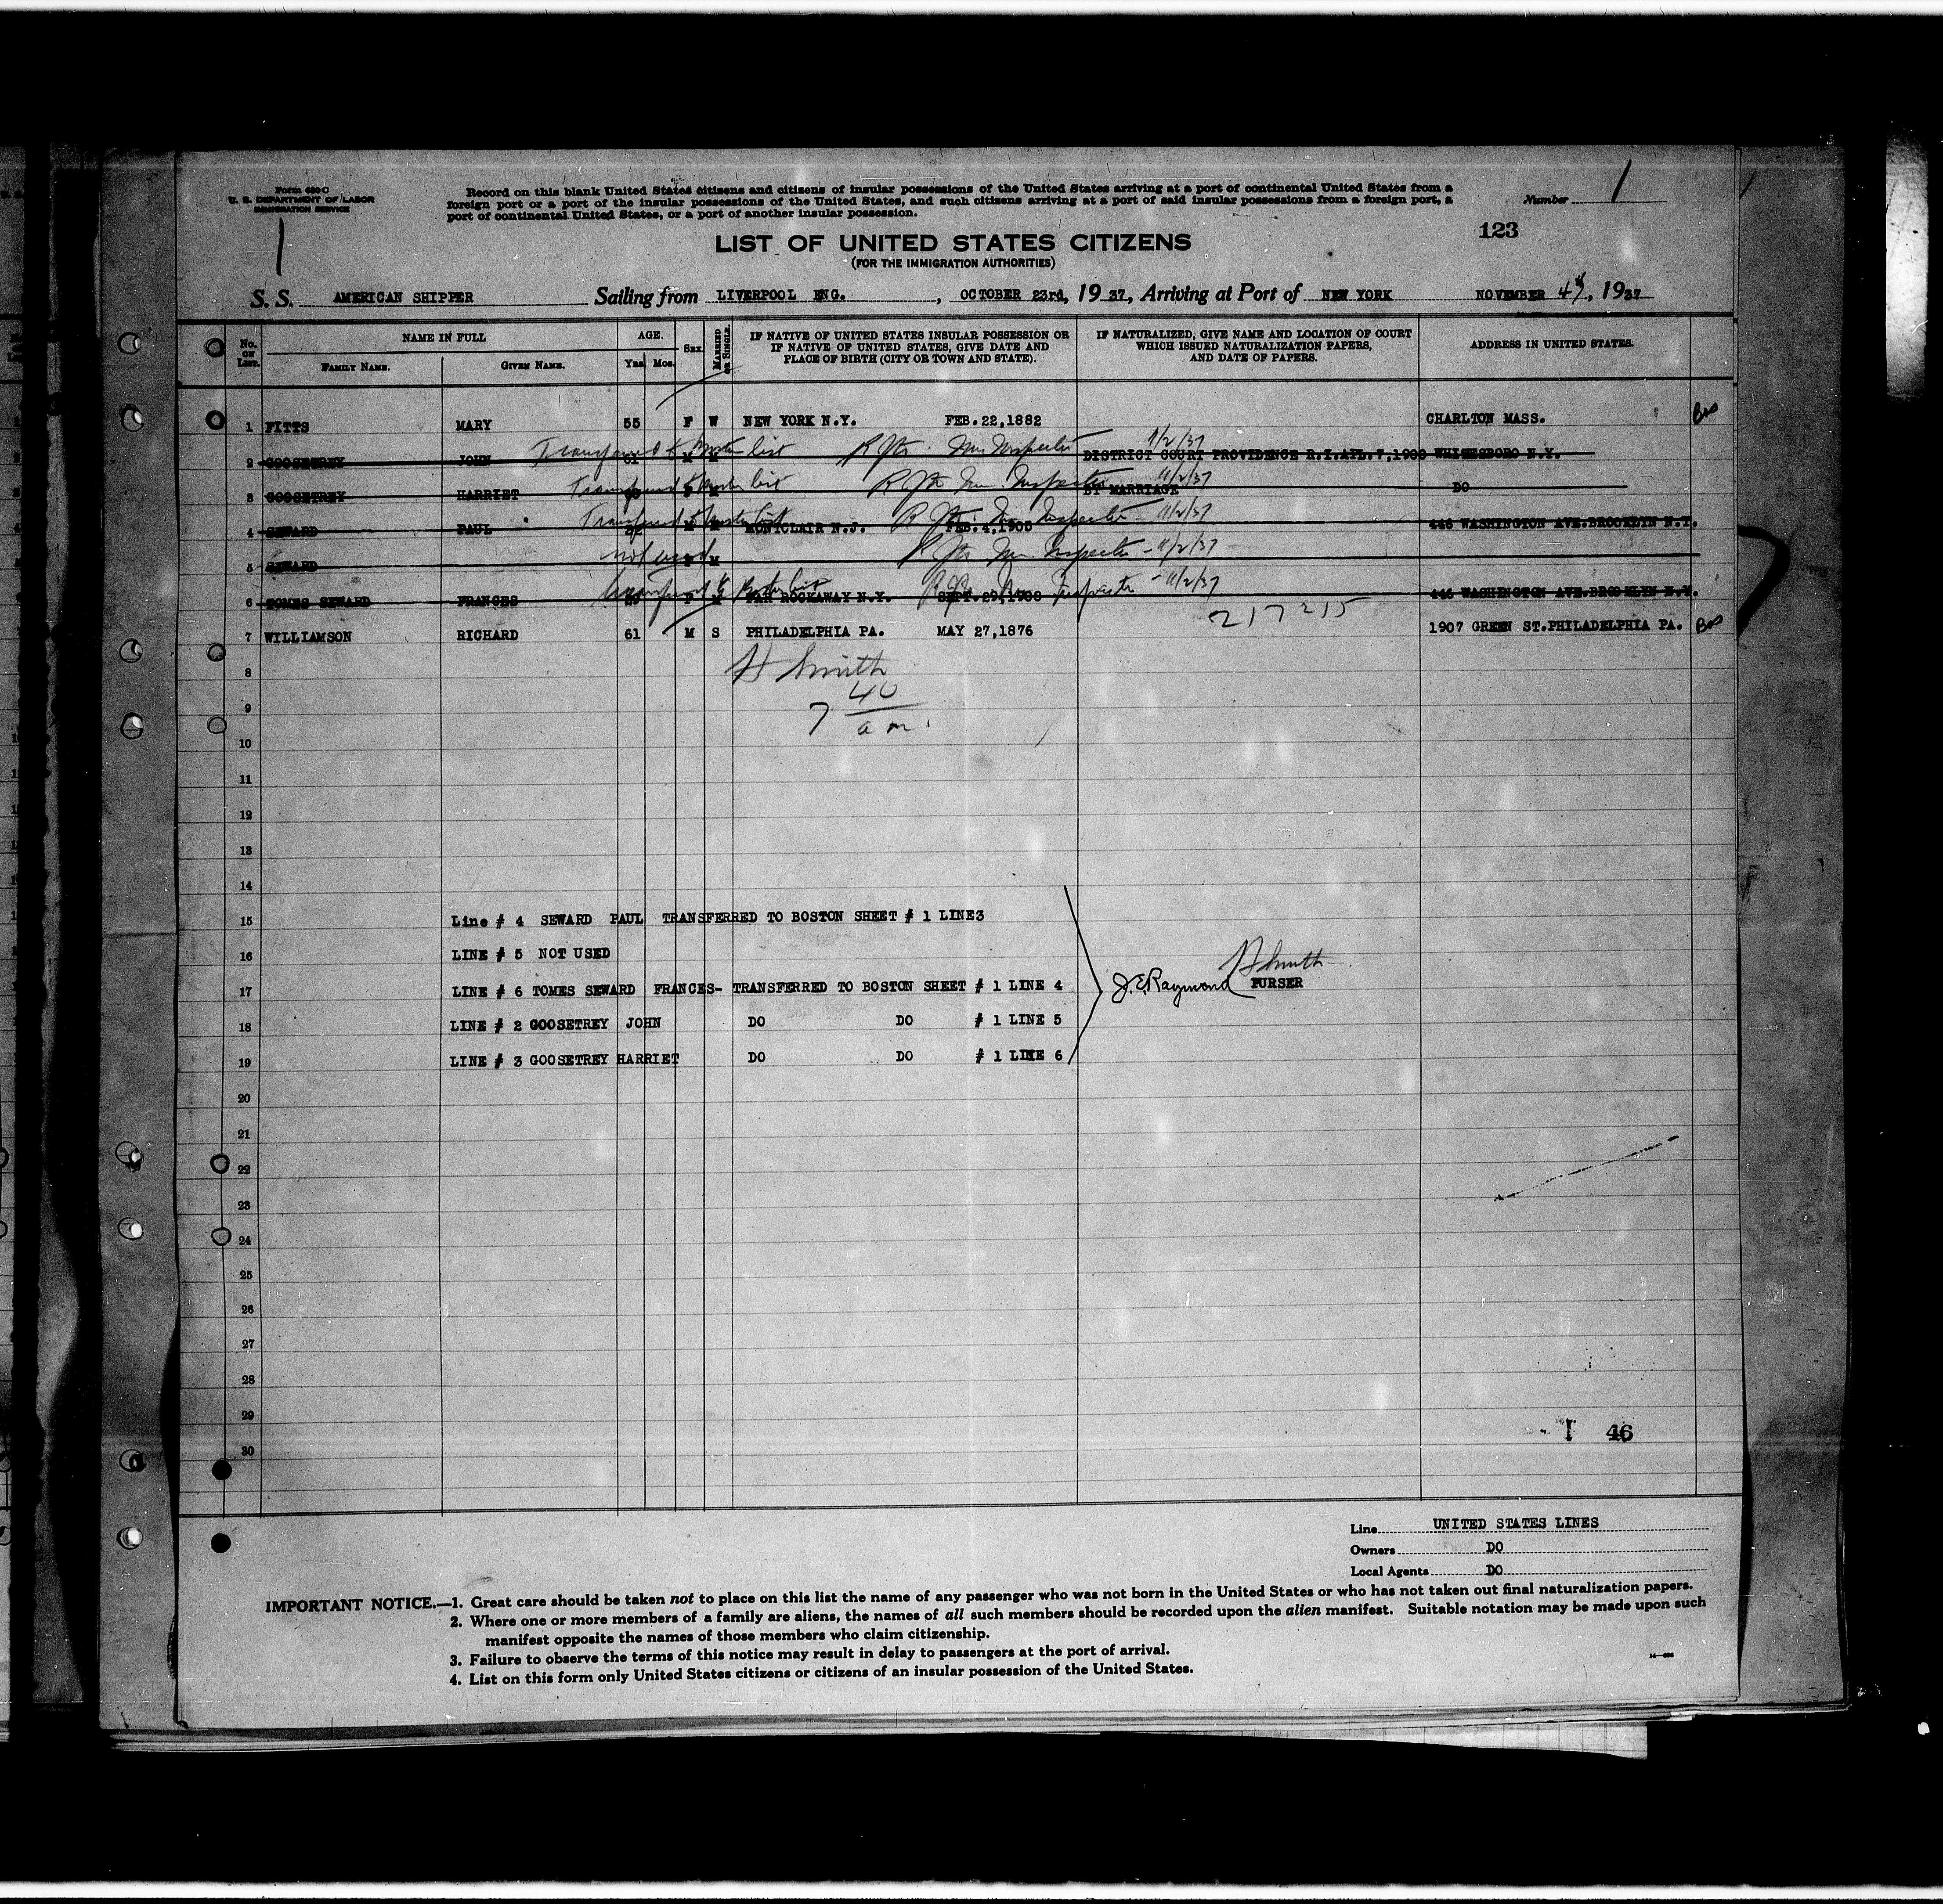 Form 630 C
U. S. DEPARTMENT OF LABOR
IMMIGRATION SERVICE
Record on this blank United States citizens and citizens of insular possessions of the United States arriving at a port of continental United States from a
foreign port or a port of the insular possessions of the United States, and such citizens arriving at a port of said insular possessions from a foreign port, a
port of continental United States, or a port of another insular possession.
Number 1
123
1
LIST OF UNITED STATES CITIZENS
(FOR THE IMMIGRATION AUTHORITIES)
S. S. AMERICAN SHIPPER Sailing from LIVERPOOL ENG. , OCTOBER 23rd, 19 37, Arriving at Port of NEW YORK NOVEMBER 4th, 1937
No. ON LIST. NAME IN FULL AGE. SEX. MARRIED OR SINGLE. IF NATIVE OF UNITED STATES INSULAR POSSESSION OR IF NATIVE OF UNITED STATES, GIVE DATE AND PLACE OF BIRTH (CITY OR TOWN AND STATE). IF NATURALIZED, GIVE NAME AND LOCATION OF COURT WHICH ISSUED NATURALIZATION PAPERS, AND DATE OF PAPERS. ADDRESS IN UNITED STATES.
FAMILY NAME. GIVEN NAME. Yrs. Mos.
1 FITTS MARY 55 F W NEW YORK N.Y. FEB.22,1882 CHARLTON MASS.
Transferred to Boston list Inspector 11/2/37
2 GOOSETREY JOHN 61 M M DISTRICT COURT PROVIDENCE R.I.APL.7,1900 WHITESBORO N.Y.
Transferred to Boston list Inspector 11/2/37
3 GOOSETREY HARRIET F M BY MARRIAGE DO
Transferred to Boston list Inspector - 11/2/37
4 SEWARD PAUL M M MONTCLAIR N.J. FEB.4,1905 446 WASHINGTON AVE.BROOKLYN N.Y.
not used Inspector - 11/2/37
5 SEWARD F M
Transferred to Boston list Inspector - 11/2/37
6 TOMES SEWARD FRANCES F M FAR ROCKAWAY N.Y. 446 WASHINGTON AVE.BROOKLYN N.Y.
217215
7 WILLIAMSON RICHARD 61 M S PHILADELPHIA PA. MAY 27,1876 1907 GREEN ST.PHILADELPHIA PA.
H Smith
8
7 40
9
a m.
10
11
12
13
14
15 Line # 4 SEWARD PAUL TRANSFERRED TO BOSTON SHEET # 1 LINE3
16 LINE # 5 NOT USED
H Smith
17 LINE # 6 TOMES SEWARD FRANCES- TRANSFERRED TO BOSTON SHEET # 1 LINE 4 J.E.Raymond PURSER
18 LINE # 2 GOOSETREY JOHN DO DO # 1 LINE 5
19 LINE # 3 GOOSETREY HARRIET DO DO # 1 LINE 6
20
21
22
23
24
25
26
27
28
29
46
30
Line UNITED STATES LINES
Owners DO
Local Agents DO
IMPORTANT NOTICE.—1. Great care should be taken not to place on this list the name of any passenger who was not born in the United States or who has not taken out final naturalization papers.
2. Where one or more members of a family are aliens, the names of all such members should be recorded upon the alien manifest. Suitable notation may be made upon such
manifest opposite the names of those members who claim citizenship.
3. Failure to observe the terms of this notice may result in delay to passengers at the port of arrival.
4. List on this form only United States citizens or citizens of an insular possession of the United States.